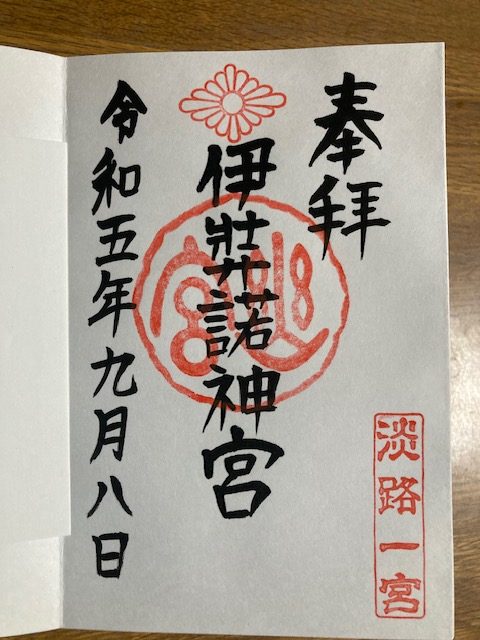 奉拝
伊弉諾神宮
令和五年九月八日
淡路一宮